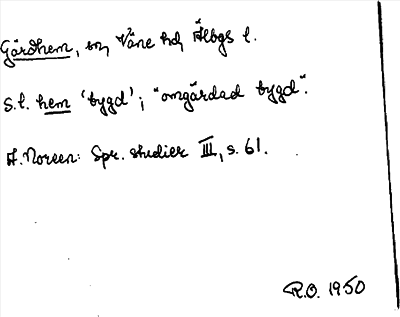 Gärdhem, sn, Väne hd, Älbgs l.
S.l. hem 'bygd'; "omgärdad bygd".
A. Noreen: Spr. studier III, s. 61.
R.O. 1950